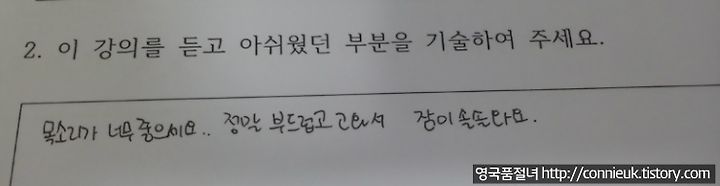 2. 이 강의를 듣고 아쉬웠던 부분을 기술하여 주세요.
목소리가 너무 좋으시어요.. 정말 부드럽고 고와서 잠이 솔솔 와요.
영국품절녀 http://connieuk.tistory.com